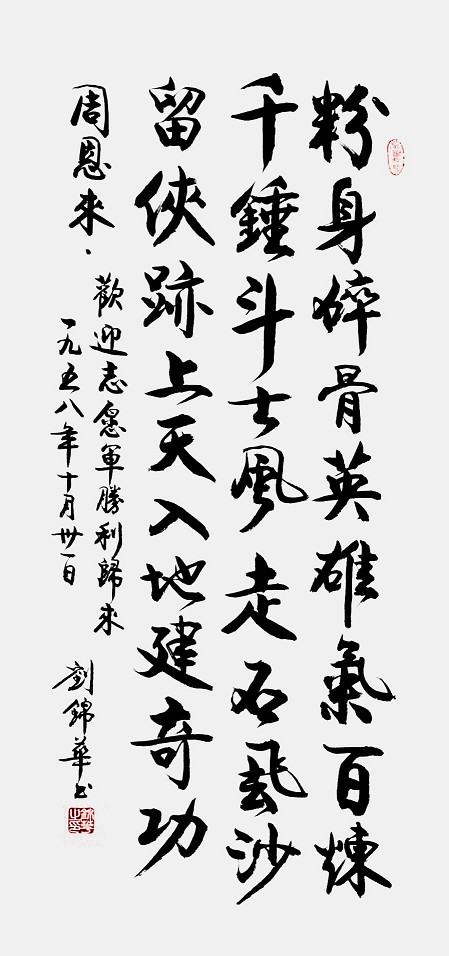 粉身碎骨英雄氣百煉
千錘斗士風走石飛沙
留俠跡上天入地建奇功
周恩來、
歡迎志愿軍勝利歸來
一九五八年十月卅一日
劉錦華书